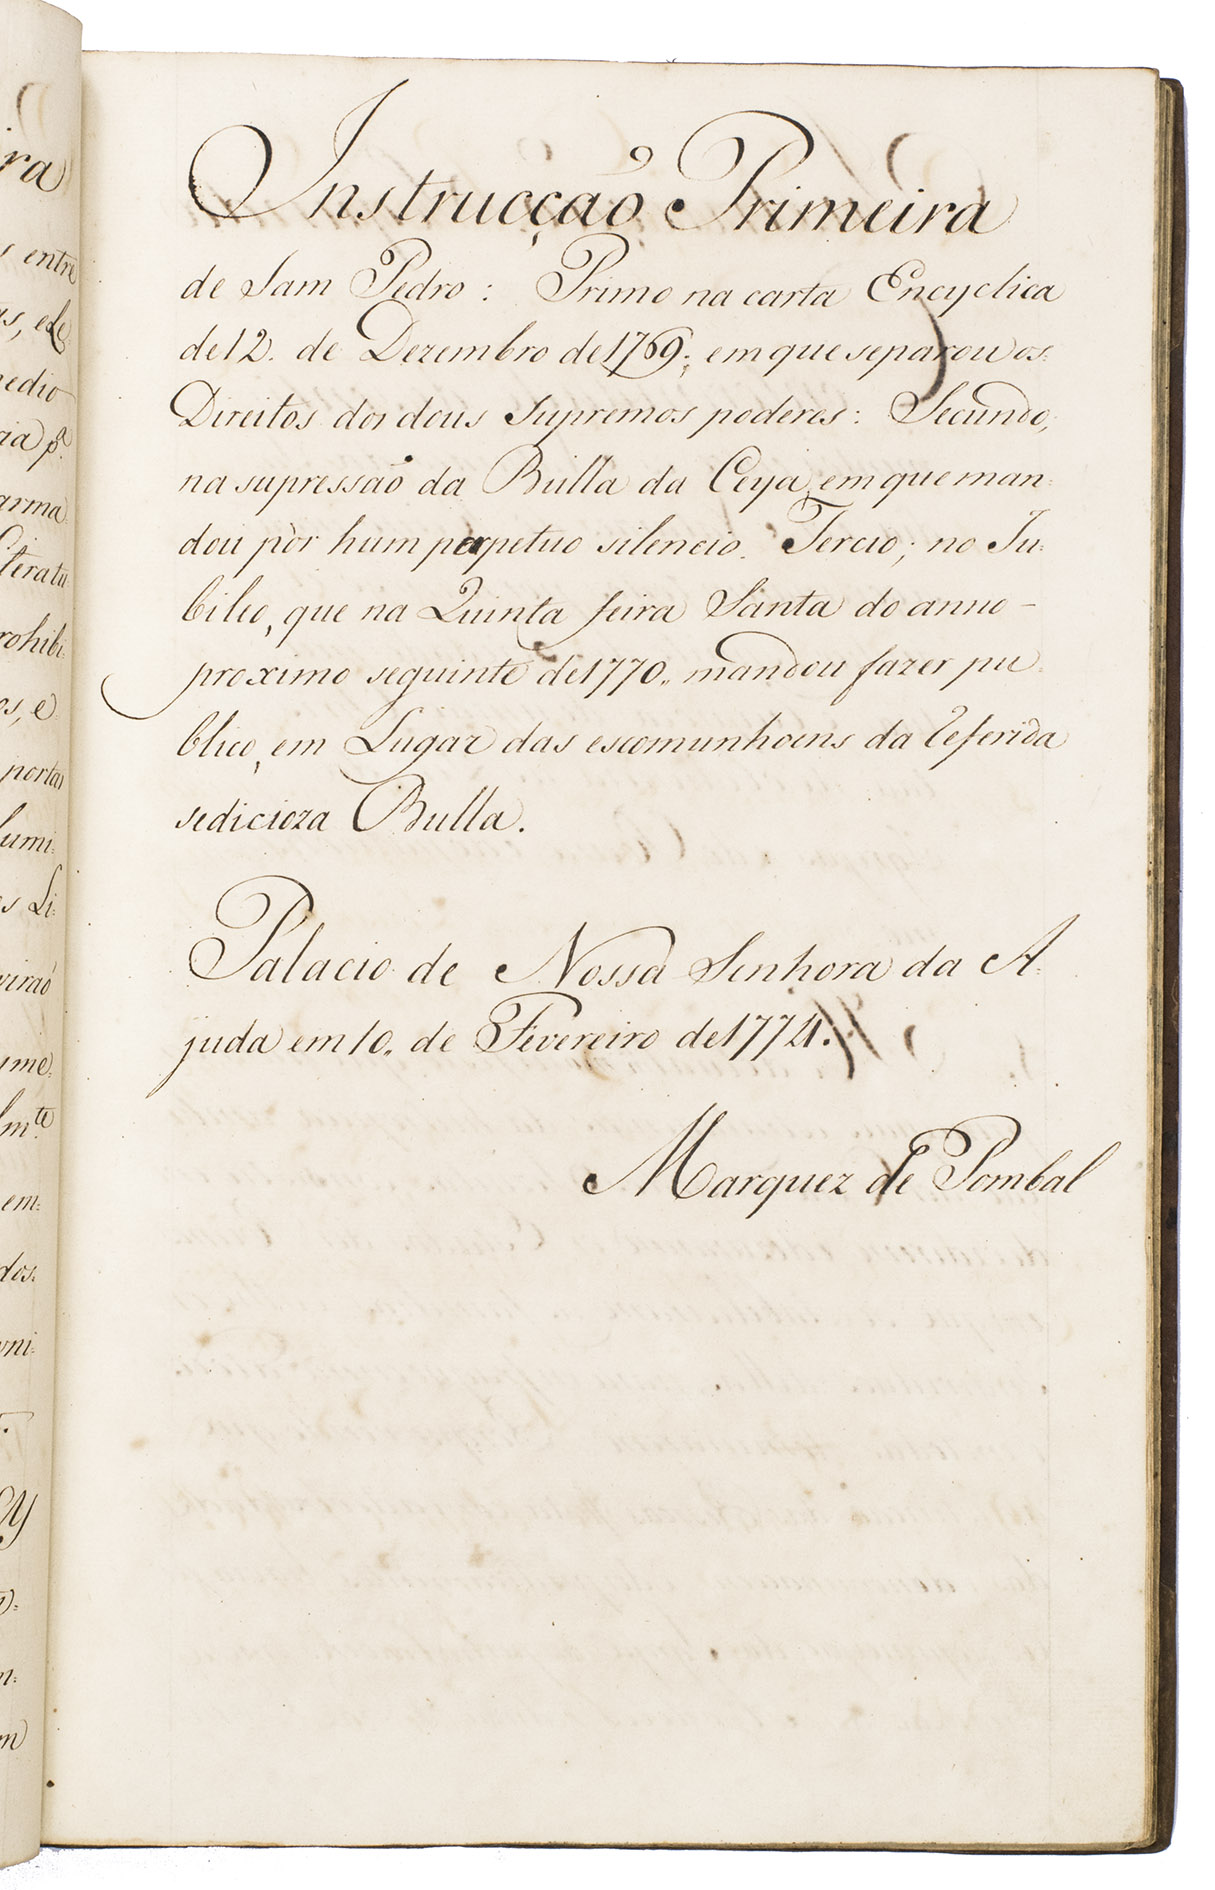 Instrucçaõ Primeira
de Sam Pedro: Primo na carta Encyclica
de 12. de Dezembro de 1769; em que separou os
Direitos dos dous Supremos poderes: Secundo,
na supressaõ da Bulla da Ceya, em que man:
dou pòr hum perpetuo silencio. Tercio; no Ju:
bileo, que na Quinta feira Santa do anno
proximo seguinte de 1770,, mandou fazer pu:
blico, em Lugar das escomunhoens da Referida
sedicioza Bulla.
Palacio de Nossa Senhora da A:
juda em 10,, de Fevereiro de 1774.
Marquez de Pombal
ra
entre
nedio
ria pª
arma
Literatu
rohibi:
os, e
portas
lumi:
s Li:
viraõ
ume:
lmte
em:
dos:
uni: